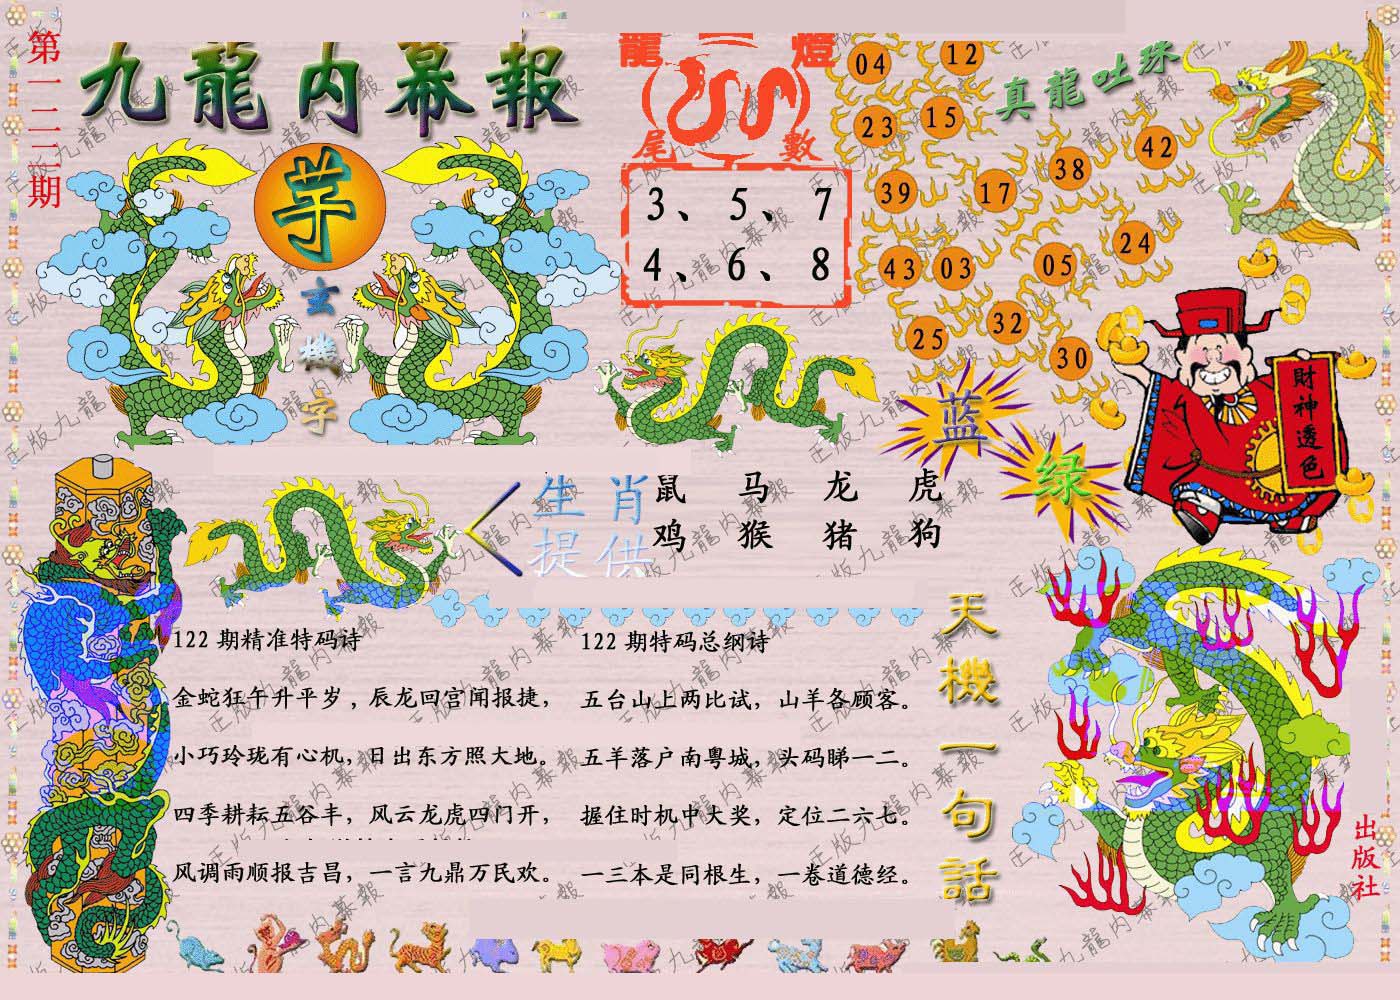 第一二二期
九龍内幕報
芋
玄機字
龍 燈
尾 數
3、5、7
4、6、8
真龍吐珠
04
12
23
15
42
38
39
17
24
43
03
05
25
32
30
蓝
绿
財神透色
生肖
提供
鼠 马 龙 虎
鸡 猴 猪 狗
122期精准特码诗
金蛇狂午升平岁,辰龙回宫闻报捷,
小巧玲珑有心机,日出东方照大地。
四季耕耘五谷丰,风云龙虎四门开,
风调雨顺报吉昌,一言九鼎万民欢。
122期特码总纲诗
五台山上两比试,山羊各顾客。
五羊落户南粤城,头码睇一二。
握住时机中大奖,定位二六七。
一三本是同根生,一卷道德经。
天機一句話
出版社
正版九龍内幕報